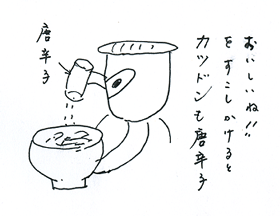 唐辛子
カツドンも唐辛子
をすこしかけると
おいしいね!!